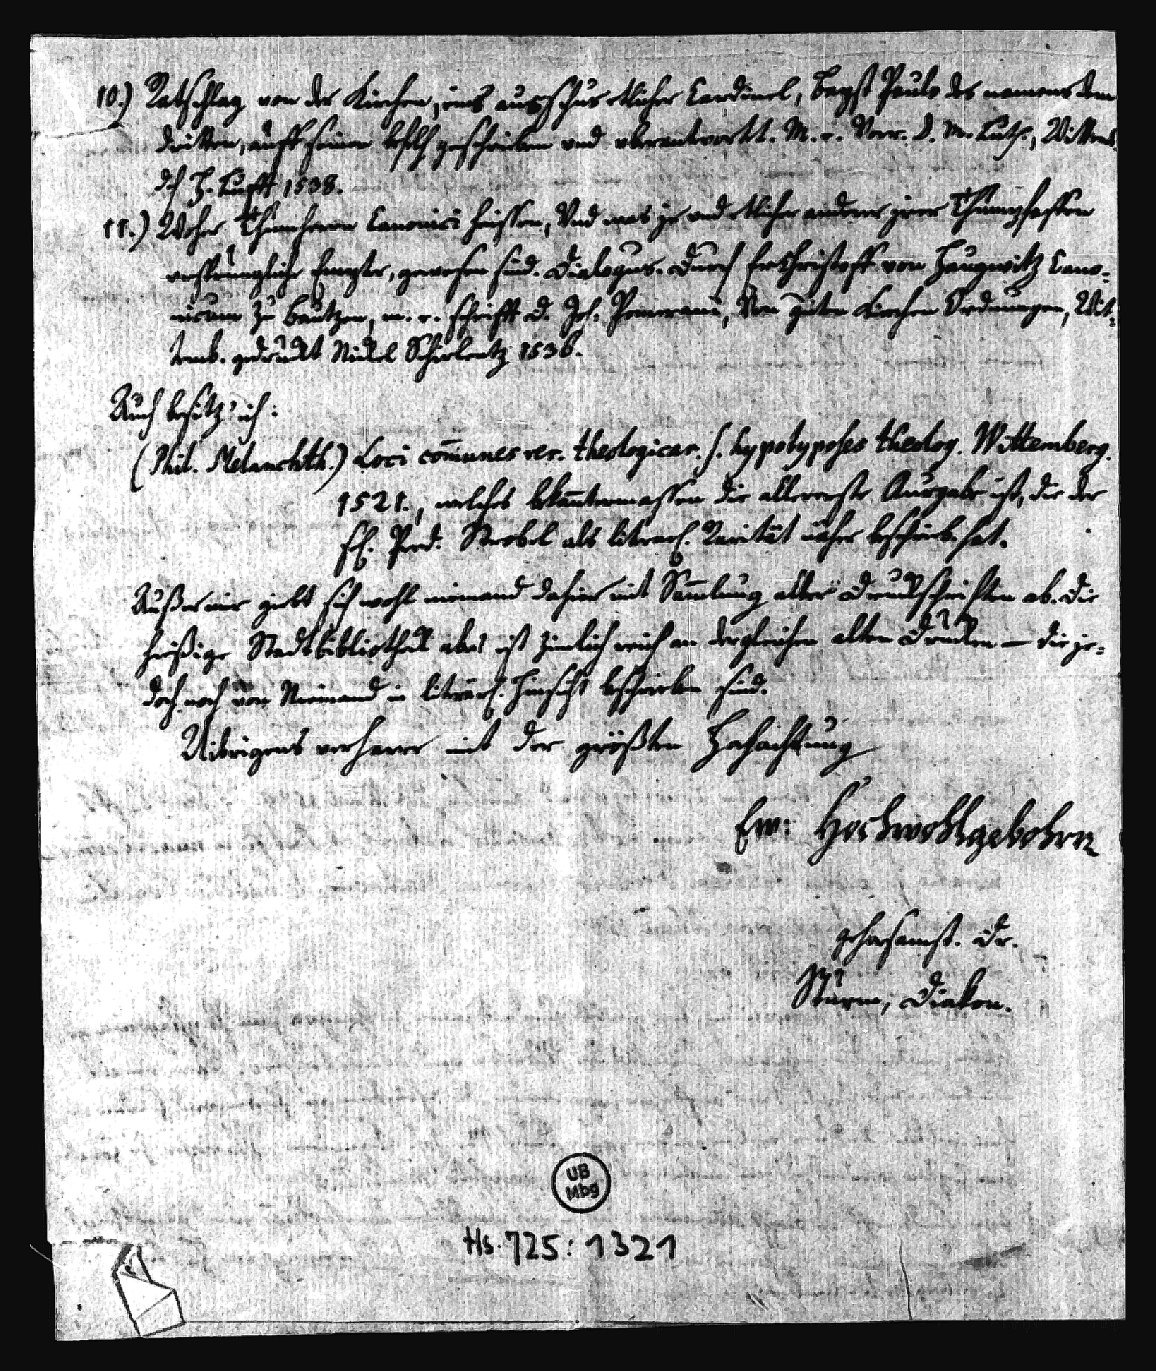 10.) Ratschlag von der Kirchen, eins ausschus etlicher Cardinel, Bapst Paulo des namens dem
dritten, auff seinen befelh geschrieben vnd vberantwortt. M. e. Vorr. D. M. Luth., Wittenb.
dch H. Lufft 1538.
11.) Woher Thumherrn Canonici heissen, Vnd was jr und etlicher anderer jrer Thumpfaffen
ursprünglich Empter, gewesen sind. Dialogus. Durch Er Christoff von Haugwitz Cano-
nicum zu Bautzen, m. e. schrifft D. Joh. Pomerani, Von guten Kirchen Ordnungen, Wit-
temb. gedruckt Nickel Schirlentz 1536.
Auch besitz' ich:
(Phil. Melanchth.) Loci com̄unes rer. theologicar. s. hypotyposes theolog. Wittemberg.
1521., welches bekan̄termassen die allererste Ausgabe ist, die der
sel. Pred. Strobel als literar. Rarität näher beschrieb. hat.
Außer mir giebt sich wohl niemand dahier mit Sam̄lung alter Druckschriften ab. Die
hiesige Stadtbibliothek aber ist ziemlich reich an dergleichen alten Drucken – die je-
doch noch von Niemand in literar. Hinsicht beschrieben sind.
Uibrigens verharre mit der größten Hochachtung
Ew: Hochwohlgebohrn
gehorsamst. Dr.
Sturm, Diakon.
UB
Mbg
Hs. 725: 1321